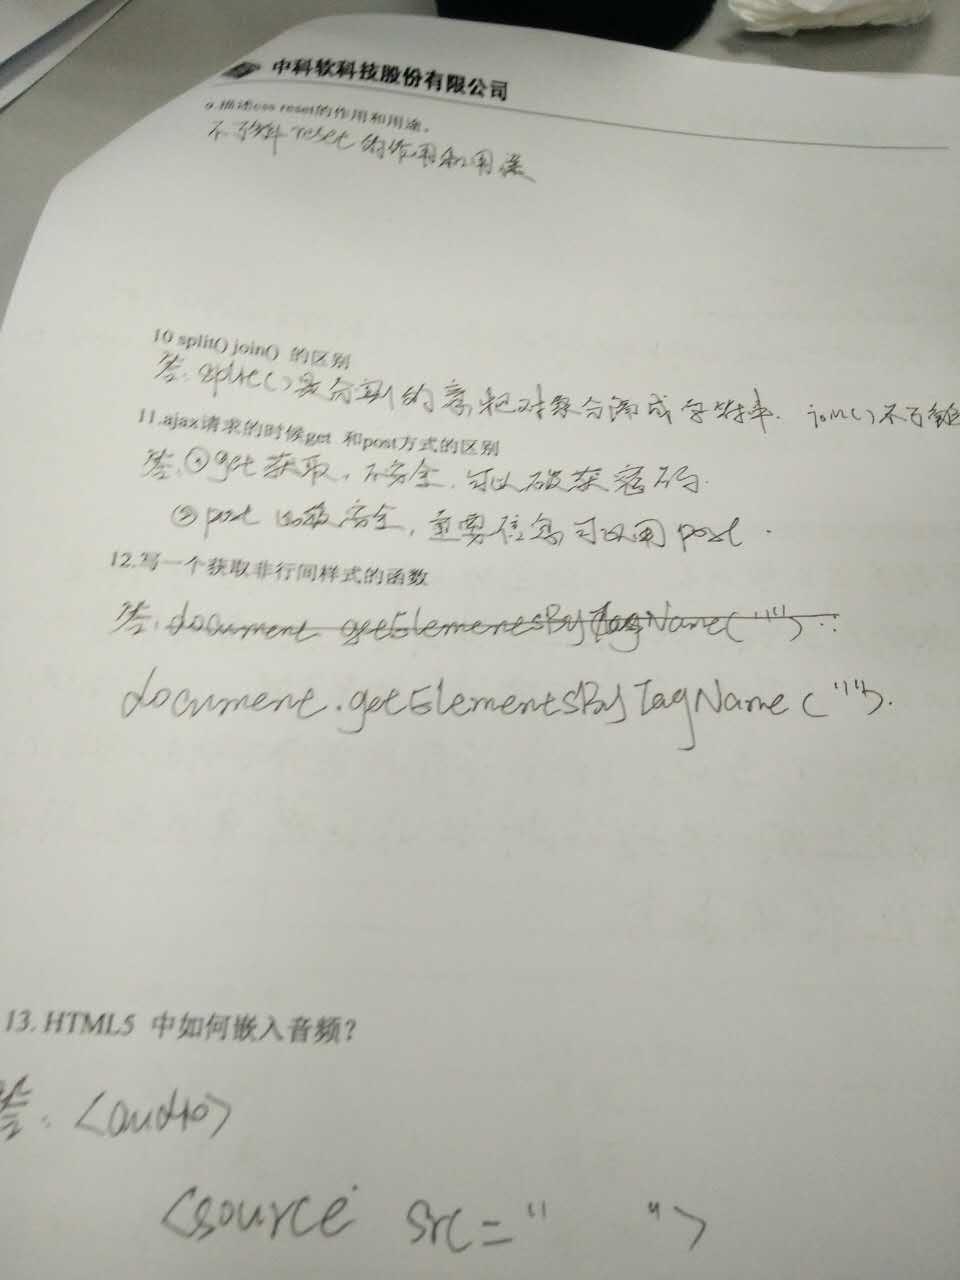 中科软科技股份有限公司
9.描述css reset的作用和用途。
不了解 reset 的作用和用途
10 split() join() 的区别
答: split()是分割的意 把对象分隔成字符串. join()不了解
11.ajax请求的时候get 和post方式的区别
答. ①get 获取, 不安全, 可以破获密码.
② post 比较安全, 重要信息可以用 post.
12.写一个获取非行间样式的函数
答. document getElementsByTagName("")
document.getElementsByTagName("").
13. HTML5 中如何嵌入音频?
答. <audio>
<source src=" ">